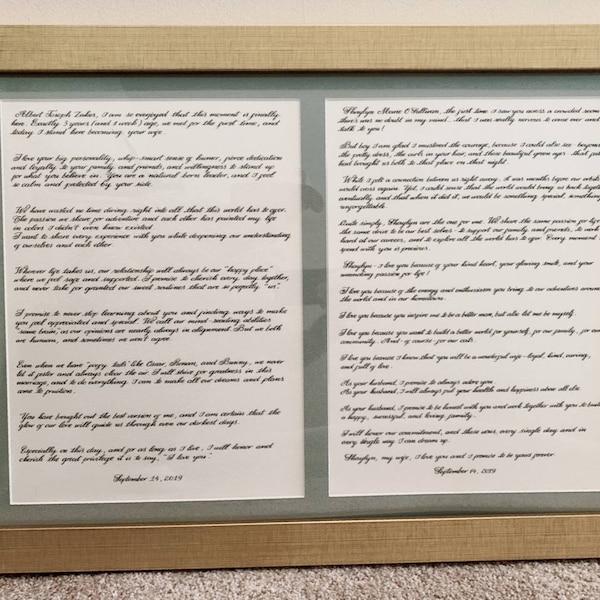 Albert Joseph Zukas, I am so overjoyed that this moment is finally
here. Exactly 3 years (and 1 week) ago, we met for the first time, and
today I stand here becoming your wife.
I love your big personality, whip-smart sense of humor, fierce dedication
and loyalty to your family and friends, and willingness to stand up
for what you believe in. You are a natural born leader, and I feel
so calm and protected by your side.
We have wasted no time diving right into all that this world has to offer.
The passion we share for adventure and each other has painted my life
in colors I didn't even know existed.
I want to share every experience with you while deepening our understanding
of ourselves and each other.
Wherever life takes us, our relationship will always be our "happy place"
where we feel safe and supported. I promise to cherish every day together,
and never take for granted our sweet routines that are so perfectly "us".
I promise to never stop learning about you and finding ways to make
you feel appreciated and special. We call our mind-reading abilities
"same brain", as our opinions are nearly always in alignment. But we both
are human, and sometimes we won't agree.
Even when we have "foggy tails" like Oscar, Roman, and Bunny, we never
let it fester and always clear the air. I will strive for greatness in this
marriage, and to do everything I can to make all our dreams and plans
come to fruition.
You have bought out the best version of me, and I am certain that the
glow of our love will guide us through even our darkest days.
Especially on this day, and for as long as I live, I will honor and
cherish the great privilege it is to say, "I love you."
September 14, 2019
Sheaflyn Marie O'Sullivan, the first time I saw you across a crowded room
there's was no doubt in my mind... that I was really nervous to come over and
talk to you!
But boy I am glad I mustered the courage, because I could also see beyond
the pretty dress, the curls in your hair, and those beautiful green eyes - that
had brought us both to that place on that night.
While I felt a connection between us right away, it was months before our
would cross again. Yet, I could sense that the world would bring us back
eventually and that when it did it, we would be something special, something
unforgettable.
Quite simply, Sheaflyn are the one for me. We share the same passion for
the same drive to be our best selves - to support our family and friends, to work
hard at our careers, and to explore all the world has to offer. Every moment
spend with you is precious.
Sheaflyn - I love you because of your kind heart, your glowing smile, and your
unending passion for life!
I love you because of the energy and enthusiasm you bring to our adventures around
the world and in our hometown.
I love you because you inspire me to be a better man, but also let me be myself.
I love you because you want to build a better world for yourself, for our family, for our
community. And - of course - for our cats.
I love you because I know that you will be a wonderful wife - loyal, kind, caring,
and full of love.
As your husband, I promise to always adore you.
As your husband, I will always put your health and happiness above all else.
As your husband, I promise to be honest with you and work together with you to build
a happy, successful, and loving family.
I will honor our commitment, and these vows, every single day and in
every single way I can dream up.
Sheaflyn, my wife, I love you and I promise to be yours forever.
September 14, 2019